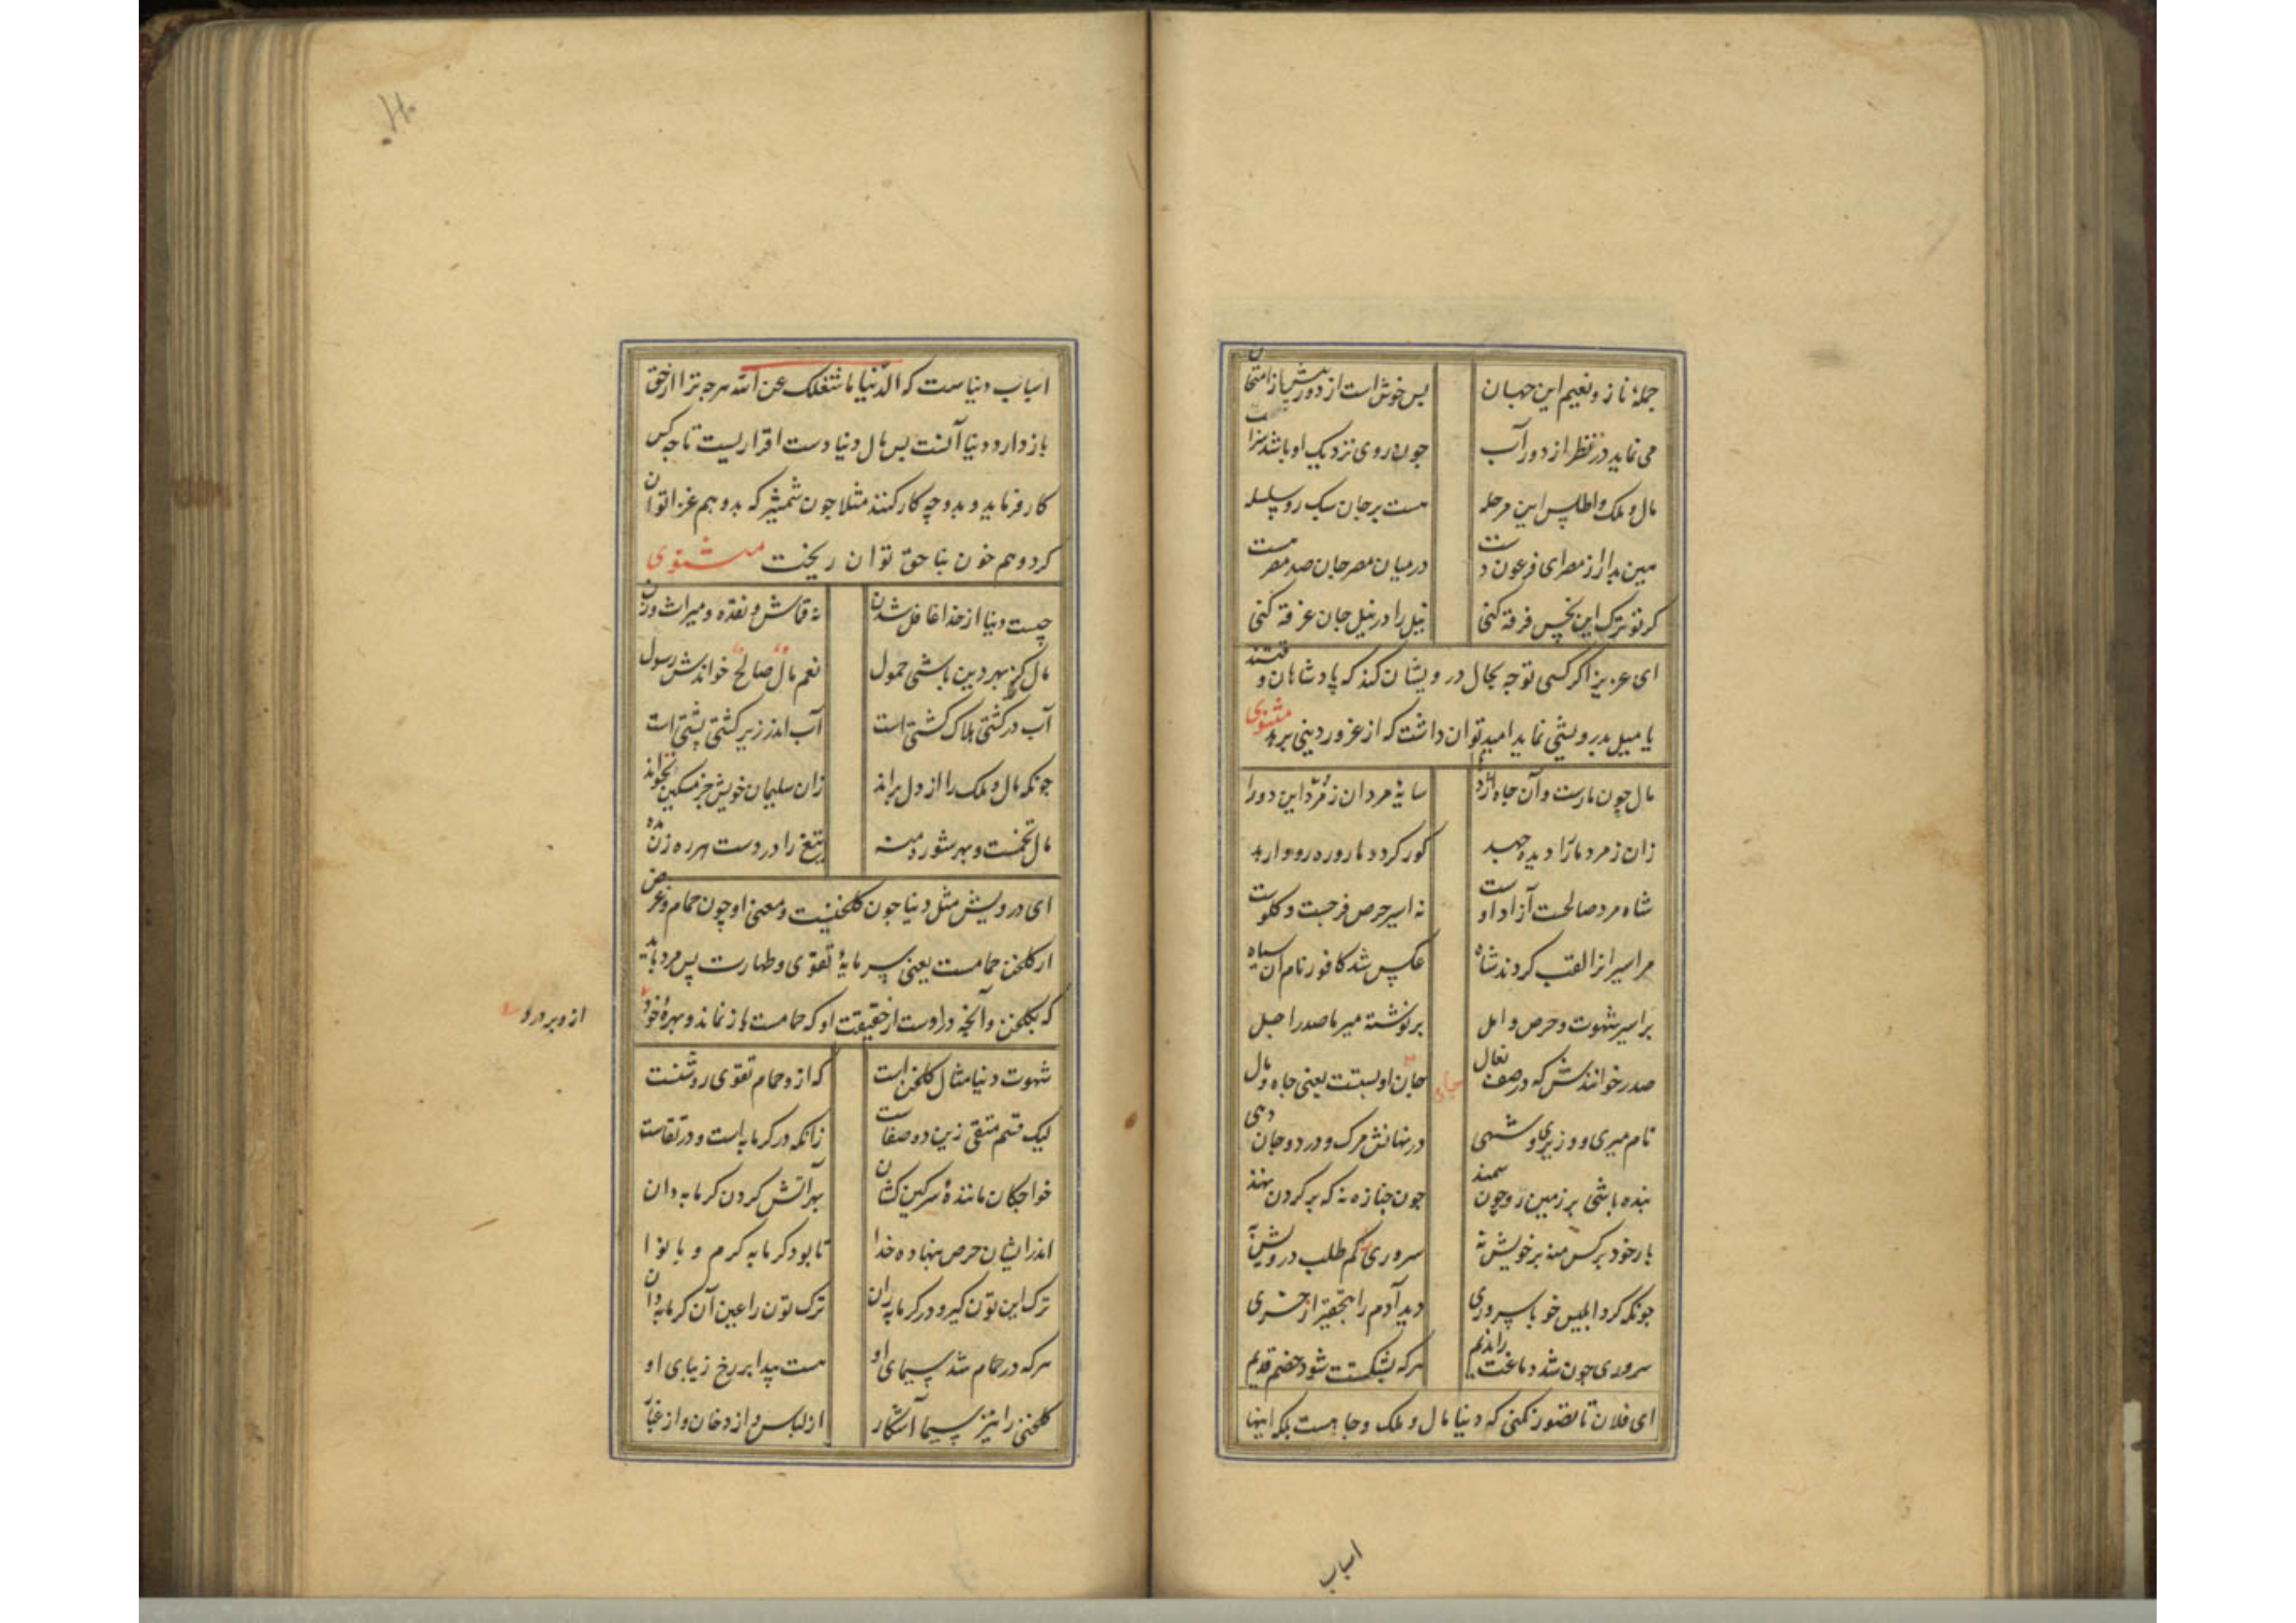 جملۀ ناز و نعیم این جهان بس خوش است از دور پیش از امتحان
می نماید در نظر از دور آب چون روی نزدیک او باشد سراب
مال و ملک و اطلس این مرحله هست بر جان سبک رو سلسله
هین بدار از مصر ای فرعون دست در میان مصر جان صد مصر هست
کر تو ترک این نجس خرقه کنی نیل را در نیل جان غرقه کنی
ای عزیز اکر کسی توجه بحال درویشان کند که پادشاهان وقتند
یا میل بدرویشی نماید امید توان داشت که از غرور دینی برهد مثنوی
مال چون مارست و آن جاه اژدها سایۀ مردان زمرد این دو را
زان زمرد مار را دیده جهد کور کردد مار و ره رو وا رهد
شاه مرد صالحست آزاد اوست نه اسیر حرص فرجست و کلوست
مر اسیرانرا لقب کردند شاه عکس شد کافور نام آن سیاه
بر اسیر شهوت و حرص و امل بر نوشته میر یا صدر اجل
صدر خوانندش که در صف نعال جان او بستست یعنی جاه و مال
نام میری و وزیری و شهی در نهانش مرک و درد و جان دهی
بنده باشی بر زمین رو چون سمند چون جنازه نه که بر کردن نهند
بار خود بر کس منه بر خویش نه سروری کم طلب درویش به
چونکه کرد ابلیس خو با سروری دید آدم را بتحقیر از خری
سروری چون شد دماغت را ندیم هر که بشکستت شود خصم قدیم
ای فلان تا تصور نکنی که دنیا مال و ملک و جاهست بلکه اینها
اسباب
اسباب دنیاست که الدنیا ما شغلک عن الله هرچه ترا از حق
باز دارد دنیا آنست پس مال دنیا دست افزاریست تا چه کس
کار فرماید و بدو چه کار کنند مثلا چون شمشیر که بدو هم غزا توان
کرد و هم خون بناحق توان ریخت مثنوی
چیست دنیا از خدا غافل شدن نه قماش و نقده و میراث و زن
مال کز بهر دین باشی حمول نعم مال صالح خواندش رسول
آب در کشتی هلاک کشتی است آب اندر زیر کشتی پشتی است
چونکه مال و ملک را از دل براند زان سلیمان خویش جز مسکین نخواند
مال تخمست و بهر شوره منه تیغ را در دست هر ره زن مده
ای درویش مثل دنیا چون کلخنیست و معنی او چون حمام و غرض
از کلخن حمامست یعنی سرمایۀ تقوی و طهارت پس مرد باید
که بکلخن و آنچه دروست از حقیقت او که حمامست باز نماند و بهرۀ خود
از و بردارد
شهوت دنیا مثال کلخن است که ازو حمام تقوی روشنست
لیک قسم متقی زین دو صفاست زانکه در کرمابه است و در نقاست
خواجکان مانندۀ سرکین کشان بهر آتش کردن کرمابه دان
اندر ایشان حرص بنهاده خدا تا بود کرمابه کرم و با نوا
ترک این تون کیر و در کرمابه ران ترک تون را عین آن کرمابه دان
هر که در حمام شد سیمای او هست پیدا بر رخ زیبای او
کلخنی را نیز سیما آشکار از لباس و از دخان و از غبار